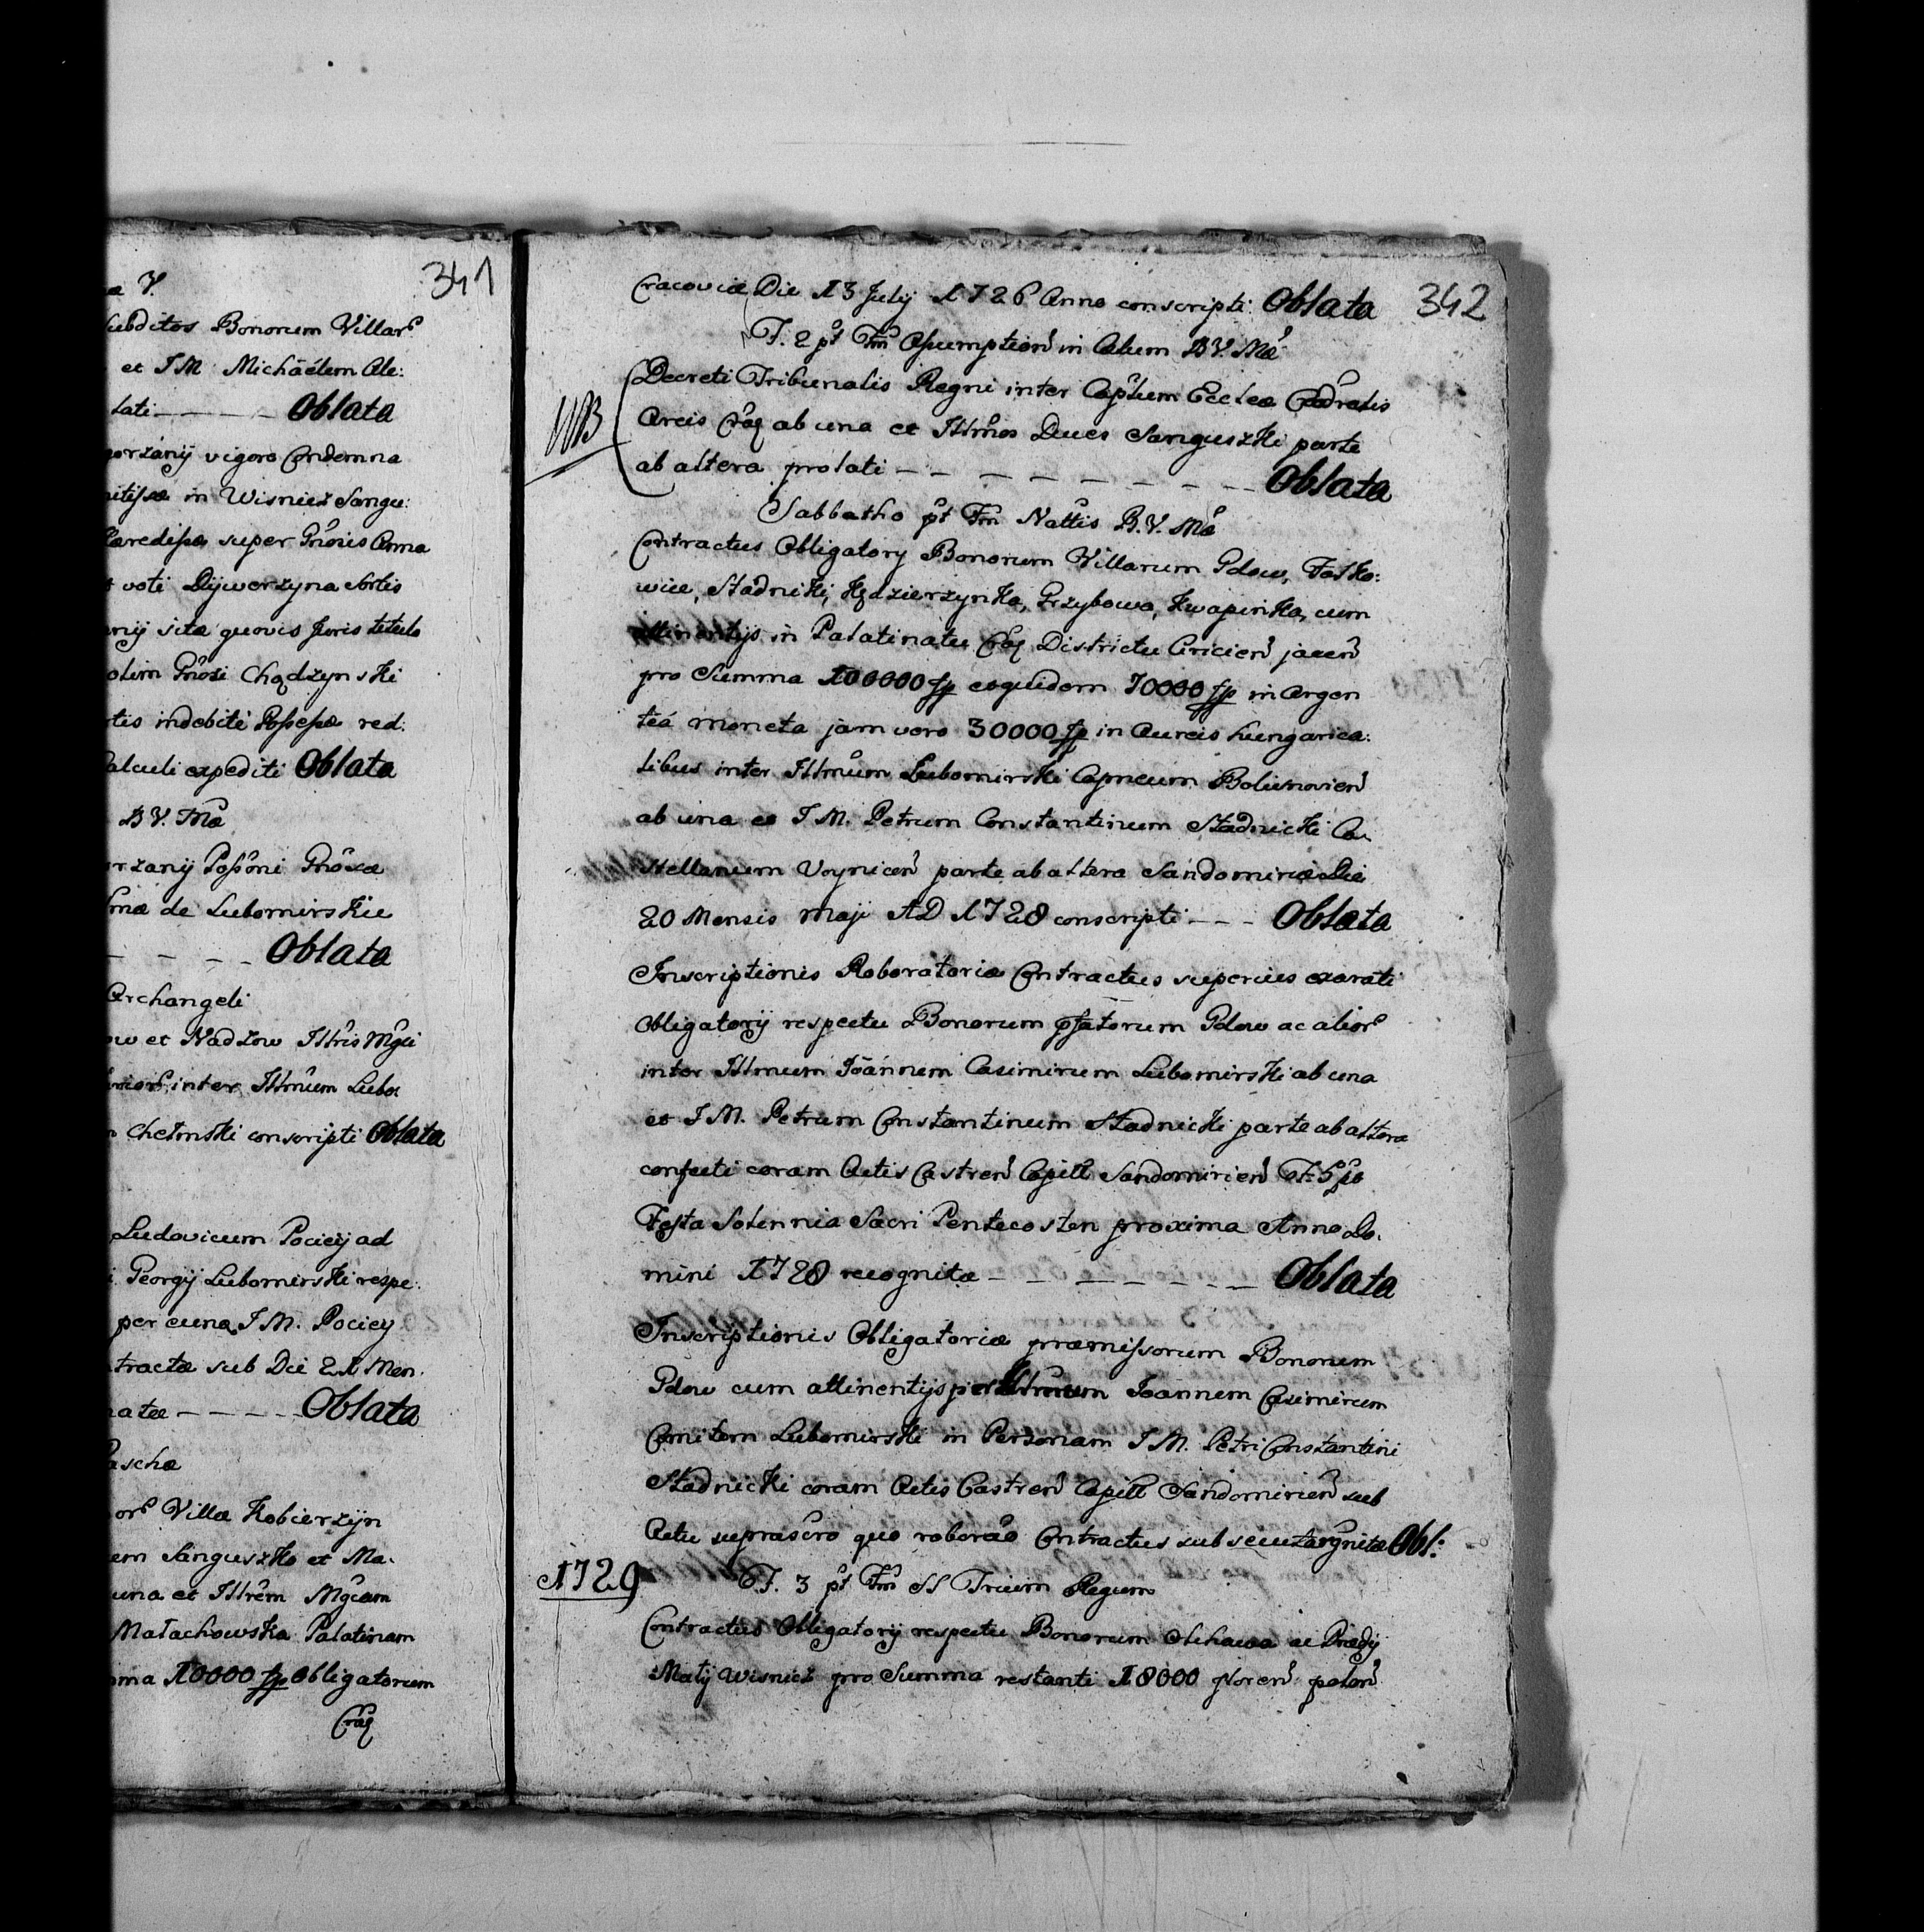 341
V.
subditos Bonorum Villar
et I M Michäélem Ale:
lati - - - - Oblata
vigore Condemna
in Wisnicz Sangu:
super Gnosis Anna
voti Dijwerzyna sortis
sita quovis Juris titulo
olim Gnosi Chądzynski
indebité Possessæ red:
calculi expediti Oblata
B V. Mæ
Possoni Gnosæ
de Lubomirskie
- - - - Oblata
Archangeli
et Nadzow Illris Mgci
inter Illmum Lubo
Chełmski conscripti Oblata
Ludovicum Pociey ad
Georgij Lubomirski respe:
per euna I M. Pociey
sub Die 21 Men.
- - - - - Oblata
Villæ Kobierzyn
Sanguszko et Ma.
una et Illrem Mgcam
Małachowska Palatinam
10000 fp obligatorum
Crac
342
Cracoviæ Die 13 Julij 1726 Anno conscripti Oblata
F. 2 pt Fm Assumption in Cælum B V. Mæ
Decreti Tribunalis Regni inter Captlum Ecclæ Cadralis
NB
Arcis Crac ab una et Illmos Duces Sanguszki parte
ab altera prolati - - - - - - - - Oblata
Sabbatho pt Fm Nattis B. V. Mæ
Contractus Obligatory Bonorum Villarum Gdow, Fałko:
wice, Stadniki, Kędzierzynka, Grzybowa, Kwapinka, cum
attinentijs in Palatinatu Crac Districtu Cricien jacen
pro Summa 100000 fp eoquidem 70000 fp in Argen
teá moneta jam vero 30000 fp in Aureis hungarica:
libus inter Illmum Lubomirski Capneum Bolimovien
ab una et I M. Petrum Constantinum Stadnicki Ca
stellanum Voynicen parte ab altera Sandomiriæ Die
20 Mensis Maji AD 1728 conscripti - - - Oblata
Inscriptionis Roboratoriæ Contractus superius exarati
Obligatorij respectu Bonorum pfatorum Gdow ac alior
inter Illmum Joánnem Casimirum Lubomirski ab una
et I M. Petrum Constantinum Stadnicki parte ab altera
confecti coram Actis Castren Capitl Sandomirien F. 5 po
Festa Solennia Sacri Pentecosten proxima Anno Do.
mini 1728 recognitæ - - - - - - - Oblata
Inscriptionis Obligatoriæ præmissorum Bonorum
Gdow cum attinentijs per Illmum Joannem Casimirum
Comitem Lubomirski in Personam I M. Petri Constantini
Stadnicki coram Actis Castren Capitl Sandomirien sub
Actu suprascro quo roborao Contractus subsecuta rgnitæ Obl:
1729
F. 3 pt Fm SS Trium Regum
Contractus Obligatorij respectu Bonorum Olchawa ac Prædij
Mały Wisnicz pro Summa restanti 18000 floren polon